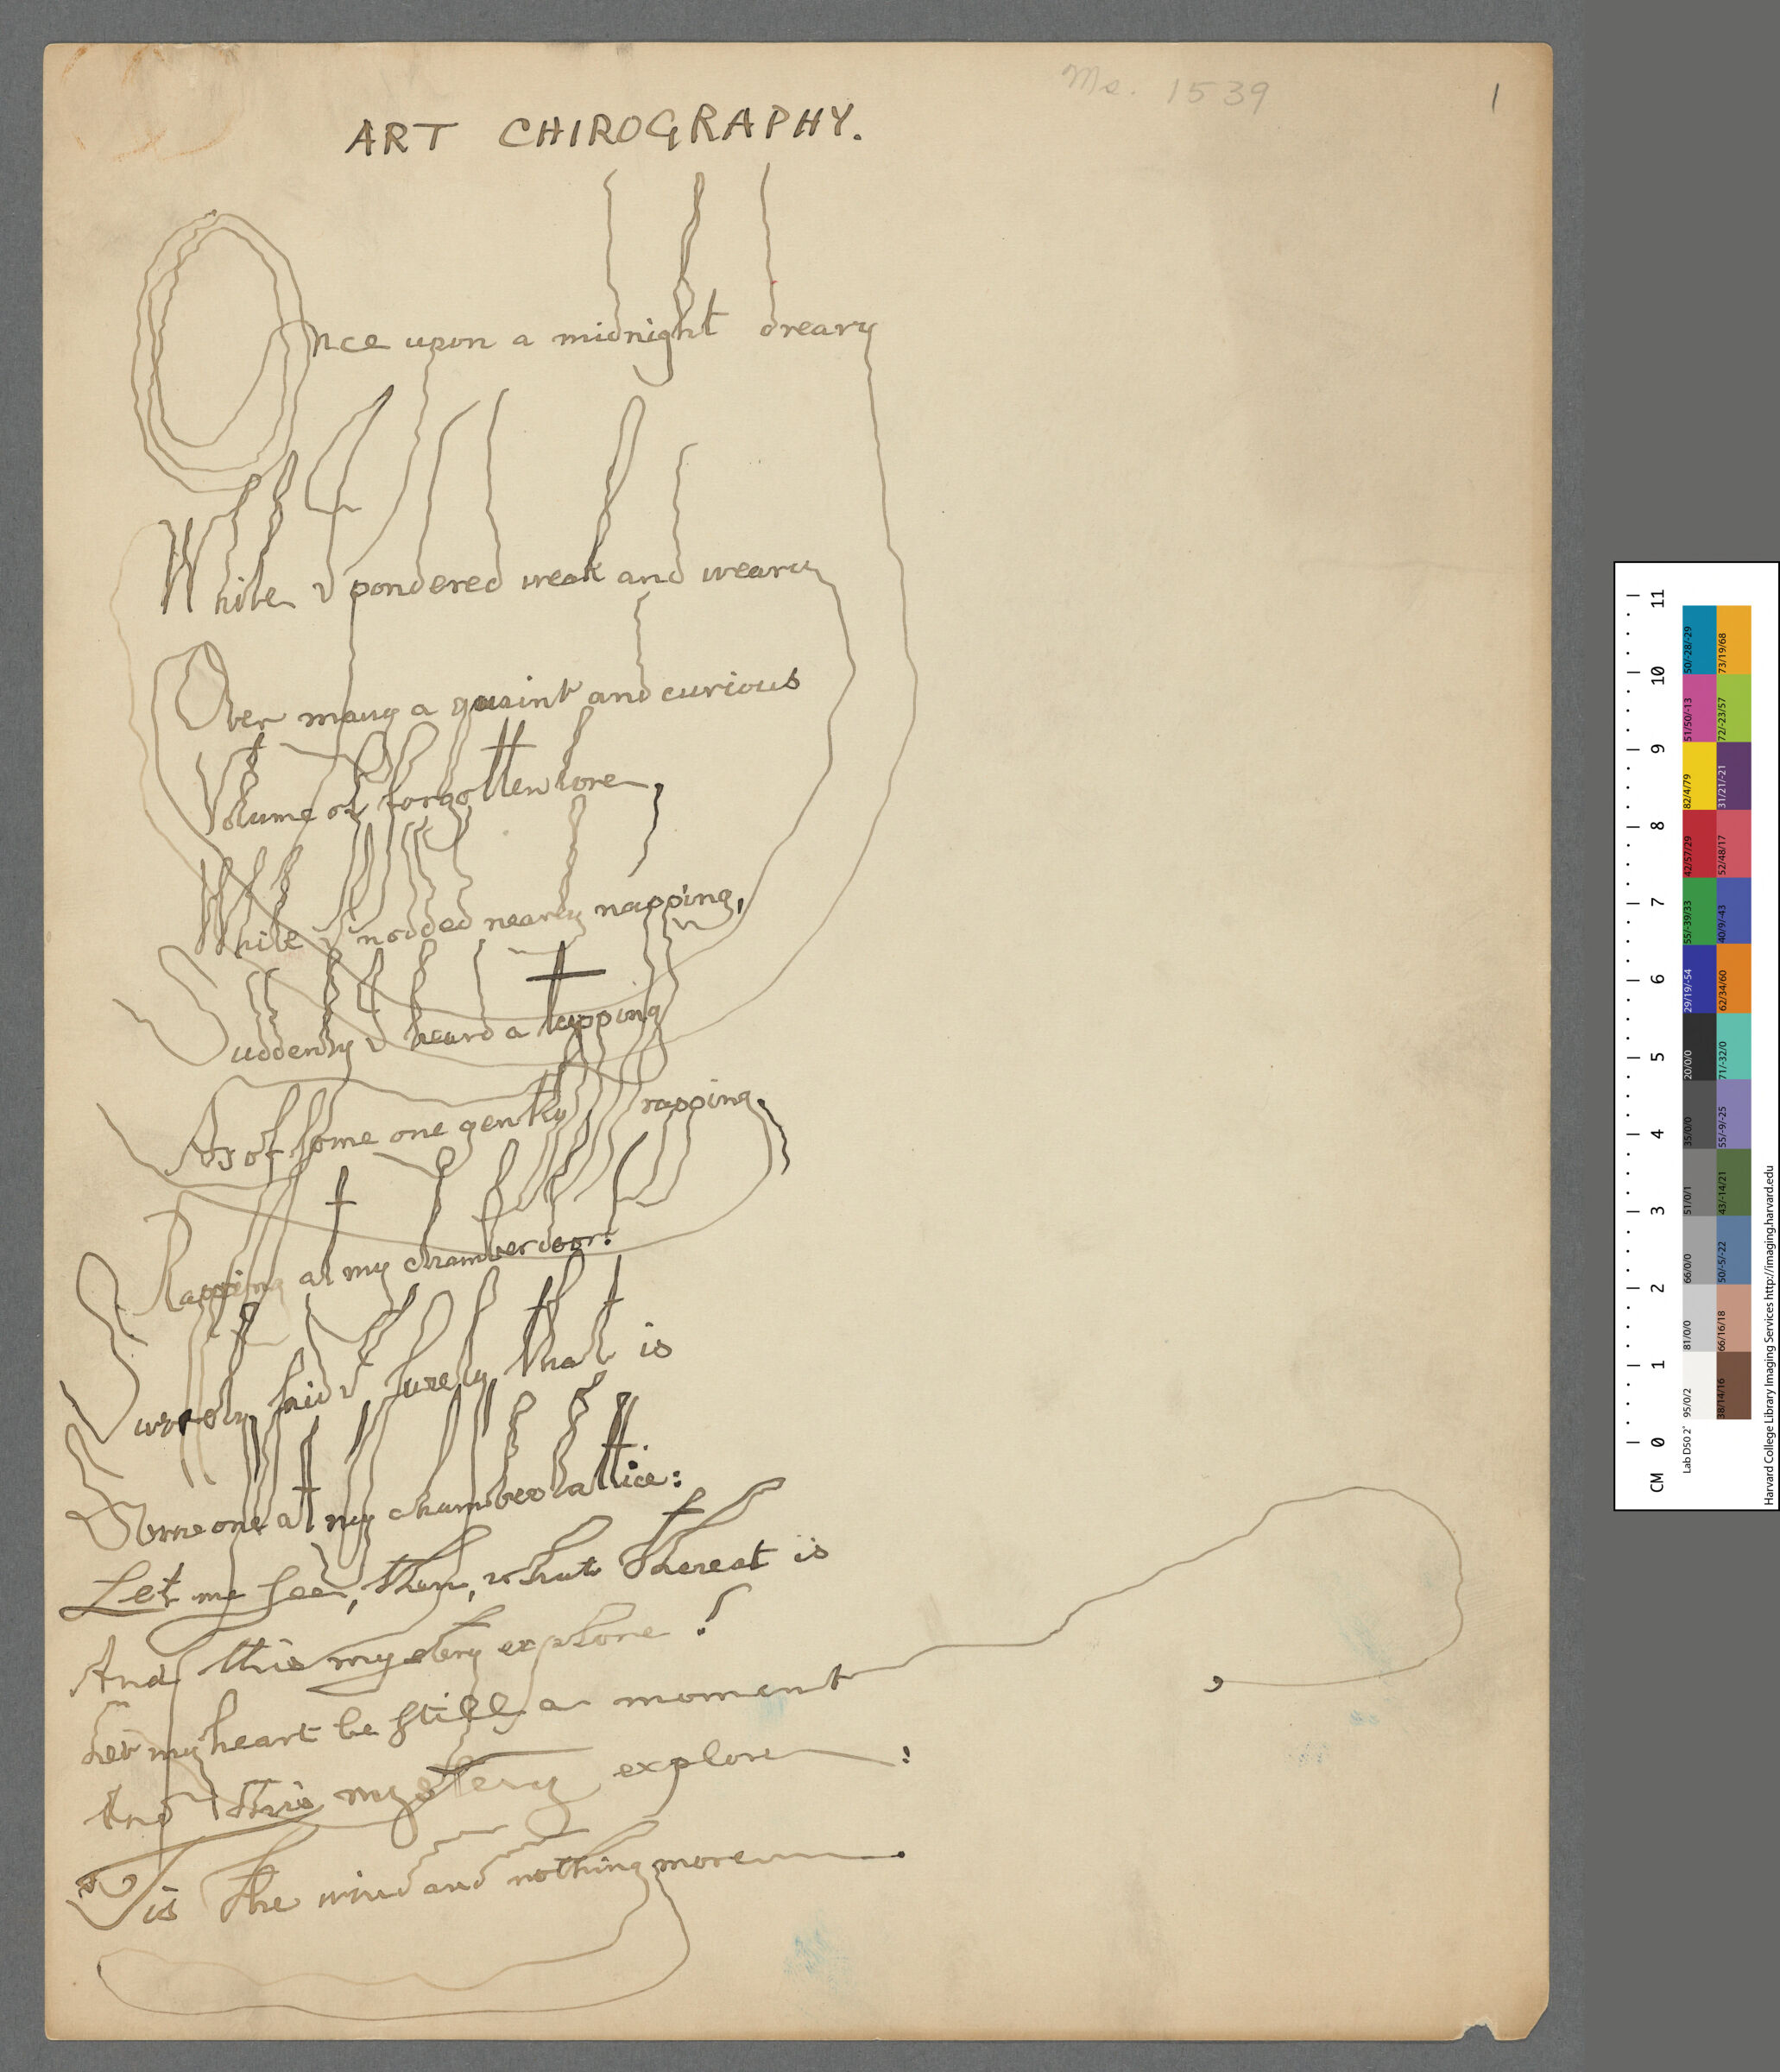 Ms. 1539
1
ART CHIROGRAPHY.
Once upon a midnight dreary
While I pondered weak and weary
Over many a quaint and curious
Volume of forgotten lore,
While I nodded nearly napping,
Suddenly I heard a tapping
As of some one gently rapping,
Rapping at my chamber door:
Surely said I surely that is
Some one at my chamber lattice:
Let me see, then, what thereat is
And this mystery explore!
Let my heart be still a moment,
And this mystery explore:
Tis the wind and nothing more.
CM 0 1 2 3 4 5 6 7 8 9 10 11
Lab D50 2°
95/0/2
81/0/0
66/0/0
51/0/1
35/0/0
20/0/0
29/19/-54
55/-39/33
42/57/29
82/4/79
51/50/-13
50/-28/-29
38/14/16
66/16/18
50/-5/-22
43/-14/21
55/-9/-25
71/-32/0
62/34/60
40/9/-43
52/48/17
31/21/-21
72/-23/57
73/19/68
Harvard College Library Imaging Services http://imaging.harvard.edu